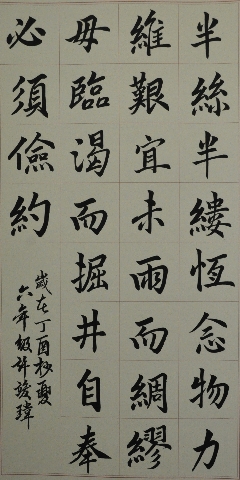 半絲半縷恆念物力
維艱宜未雨而綢繆
毋臨渴而掘井自奉
必須儉約
歲在丁酉秋夏
六年級許證瑋